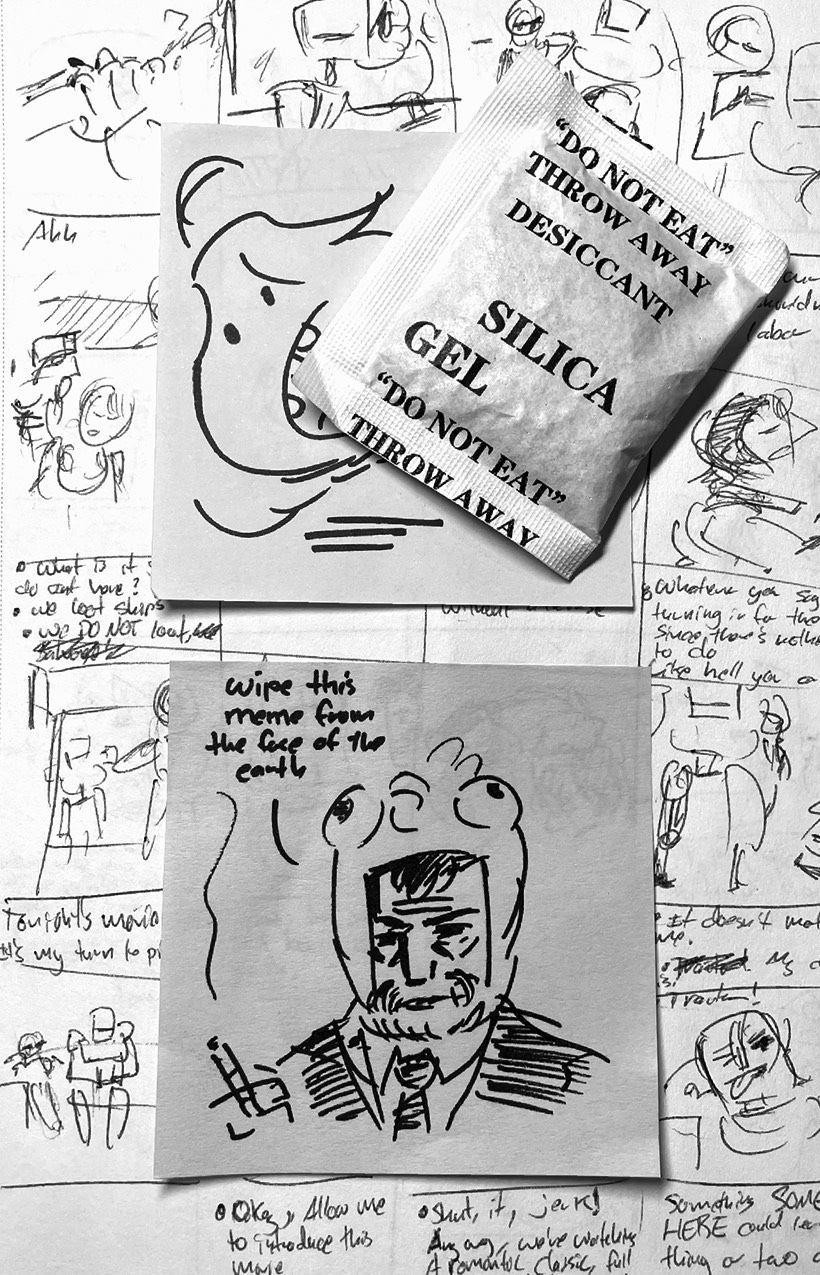 Ahh
"DO NOT EAT"
THROW AWAY
DESICCANT
SILICA
GEL
"DO NOT EAT"
THROW AWAY
• What is it
do out have?
• we loot ships
• we DO NOT loot,
• Whatever you say
turning in for the
since there's nothin
to do
like hell you a
wipe this
meme from
the face of the
earth
Tonight's movie
It's my turn to pi
• It doesn't mat
me.
• My
• Okay, Allow me
to introduce this
movie
• Shut, it, jerk!
Anyway, we're watching
A romantic classic, full
Something SOME
HERE could lear
thing or two